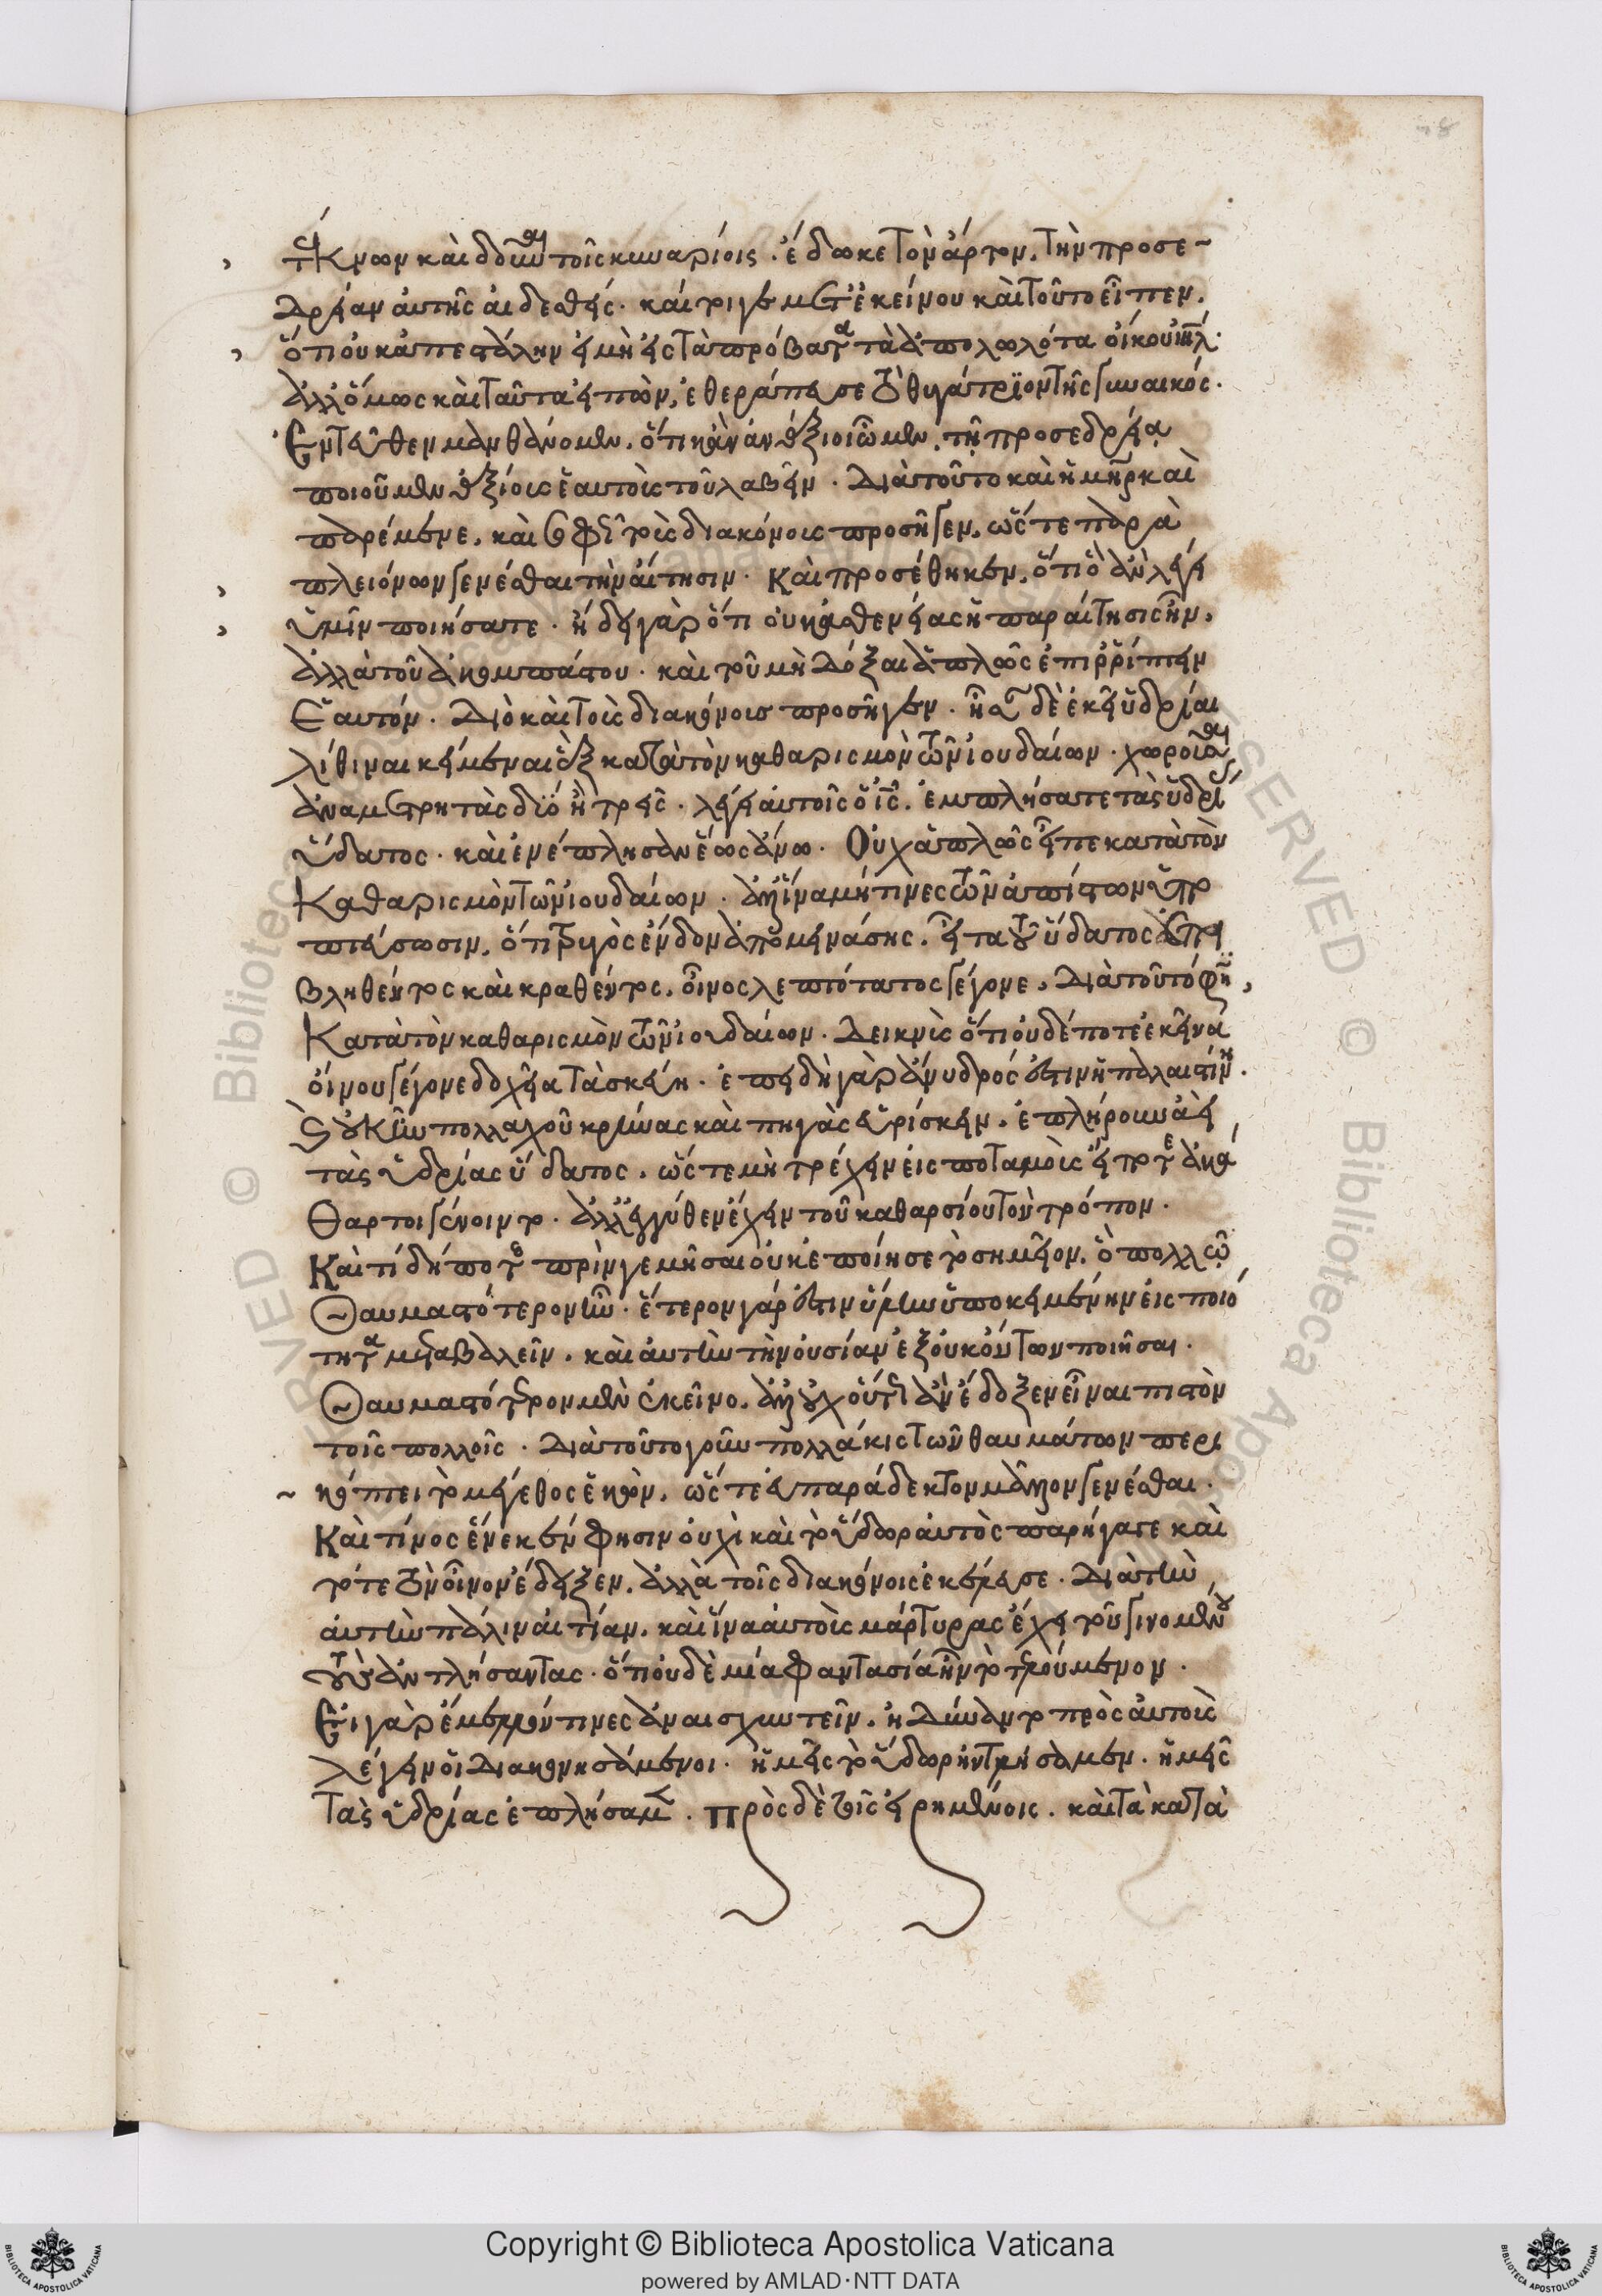 τέκνων καὶ δοῦναι τοῖς κυναρίοις. ἔδωκε τὸν ἄρτον, τὴν προσε-
δρείαν αὐτῆς αἰδεσθείς. καίτοιγε μετ' ἐκείνου καὶ τοῦτο εἶπεν.
ὅτι οὐκ ἀπεστάλην εἰ μὴ εἰς τὰ πρόβατα τὰ ἀπολωλότα οἴκου ἰηλ.
ἀλλ' ὅμως καὶ ταῦτα εἰπὼν, ἐθεράπευσε τὸ θυγάτριον τῆς γυναικός.
Ἐντεῦθεν μανθάνομεν, ὅτι κἂν ἀνάξιοι ὦμεν, τῇ προσεδρείᾳ
ποιοῦμεν ἀξίους ἑαυτοὺς τοῦ λαβεῖν. Διὰ τοῦτο καὶ ἡ μηρ καὶ
παρέμενε, καὶ σοφῶς τοὺς διακόνους προσῆγεν, ὥστε παρὰ
πλειόνων γενέσθαι τὴν αἴτησιν. Καὶ προσέθηκεν, ὅτι ὃ ἂν λέγῃ
ὑμῖν ποιήσατε. ᾔδει γὰρ ὅτι οὐκ ἀσθενείας ἡ παραίτησις ἦν,
ἀλλὰ τοῦ ἀκομπάστου. καὶ τοῦ μὴ δόξαι ἁπλῶς ἐπιρρίπτειν
Ἑαυτόν. Διὸ καὶ τοὺς διακόνους προσῆγεν. ἦσαν δὲ ἐκεῖ ὑδρίαι
λίθιναι κείμεναι ἓξ κατὰ τὸν καθαρισμὸν τῶν ἰουδαίων. χωροῦσαι
ἀνα μετρητὰς δύο ἢ τρεῖς. λέγει αὐτοῖς ὁ ις. ἐμπλήσατε τὰς ὑδρί
ὕδατος. καὶ ἐνέπλησαν ἕως ἄνω. Οὐχ ἁπλῶς εἶπε κατὰ τὸν
Καθαρισμὸν τῶν ἰουδαίων. ἀλλ' ἵνα μή τινες τῶν ἀπίστων ὑπο
πτεύσωσιν, ὅτι τρυγὸς ἔνδον ἀπομεινάσης, εἶτα τοῦ ὕδατος ἐπι
βληθέντος καὶ κραθέντος, οἶνος λεπτότατος γέγονε, Διὰ τοῦτό φη,
Κατὰ τὸν καθαρισμὸν τῶν ἰουδαίων. Δεικνὺς ὅτι οὐδέποτε ἐκεῖνα
οἴνου γέγονε δοχεῖα τὰ σκεύη. ἐπειδὴ γὰρ ἄνυδρός ἐστιν ἡ παλαιστίνη.
καὶ οὐκ ἦν πολλαχοῦ κρήνας καὶ πηγὰς εὑρίσκειν, ἐπλήρουν ἀεὶ
τὰς ὑδρίας ὕδατος, ὥστε μὴ τρέχειν εἰς ποταμοὺς εἴ ποτε ἀκά
θαρτοι γένοιντο. ἀλλ' ἐγγύθεν ἔχειν τοῦ καθαρσίου τὸν τρόπον.
Καὶ τί δήποτε πρὶν γεμῆσαι οὐκ ἐποίησε τὸ σημεῖον, ὃ πολλῷ
Θαυμαστότερον ἦν. ἕτερον γάρ ἐστιν ὕλην ὑποκειμένην εἰς ποιό
τητα μεταβαλεῖν, καὶ αὐτὴν τὴν οὐσίαν ἐξ οὐκ ὄντων ποιῆσαι.
Θαυμαστότερον μὲν ἐκεῖνο, ἀλλ' οὐχ οὕτως ἂν ἔδοξεν εἶναι πιστὸν
τοῖς πολλοῖς. Διὰ τοῦτο γοῦν πολλάκις τῶν θαυμάτων περι
κόπτει τὸ μέγεθος ἑκὼν, ὥστε εὐπαράδεκτον μᾶλλον γενέσθαι.
Καὶ τίνος ἕνεκέν φησιν οὐχὶ καὶ τὸ ὕδωρ αὐτὸς παρήγαγε καὶ
τότε τὸν οἶνον ἔδειξεν, ἀλλὰ τοῖς διακόνοις ἐκέλευσε. Διὰ τὴν
αὐτὴν πάλιν αἰτίαν, καὶ ἵνα αὐτοὺς μάρτυρας ἔχῃ τοῦ γινομένου
τοὺς ἀντλήσαντας. ὅτι οὐδὲ μία φαντασία ἦν τὸ τελούμενον.
Εἰ γὰρ ἔμελλόν τινες ἀναισχυντεῖν, ἠδύναντο πρὸς αὐτοὺς
λέγειν οἱ διακονησάμενοι. ἡμεῖς τὸ ὕδωρ ἠντλήσαμεν. ἡμεῖς
τὰς ὑδρίας ἐπλήσαμεν. πρὸς δὲ τοῖς εἰρημένοις, καὶ τὰ κατὰ
Copyright © Biblioteca Apostolica Vaticana
powered by AMLAD·NTT DATA